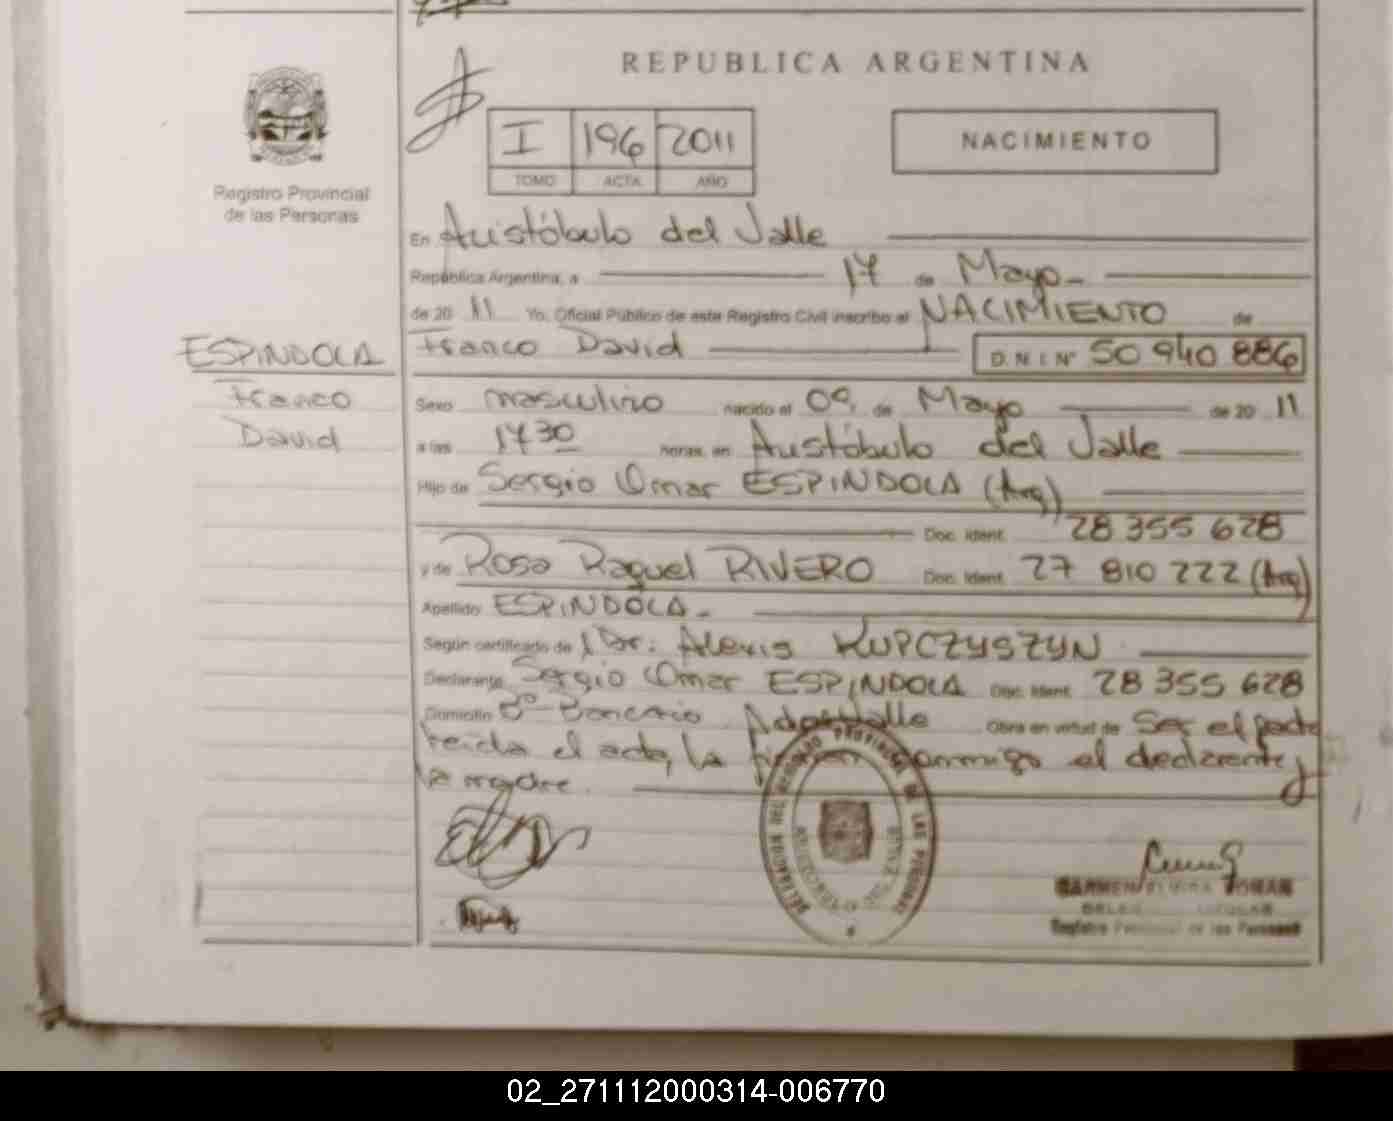 REPUBLICA ARGENTINA
I 196 2011
TOMO ACTA AÑO
NACIMIENTO
Registro Provincial
de las Personas
En Aristóbulo del Valle
República Argentina, a 17 de Mayo
de 20 11 Yo, Oficial Público de este Registro Civil inscribo el NACIMIENTO de
Franco David D.N.I. Nº 50 940 886
ESPINDOLA
Franco
David
Sexo masculino nacido el 09 de Mayo de 20 11
a las 17 30 horas, en Aristóbulo del Valle
Hijo de Sergio Omar ESPINDOLA (Arg)
Doc. Ident. 28 355 628
y de Rosa Raquel RIVERO Doc. Ident. 27 810 222 (Arg)
Apellido ESPINDOLA
Según certificado de Dr. Alexis KUPCZYSZYN
Declarante Sergio Omar ESPINDOLA Doc. Ident. 28 355 628
Domicilio Bº Bancario A del Valle Obra en virtud de Ser el padre
leída el acta, la firman conmigo el declarante y
la madre.
DELEGACION DEL REGISTRO PROVINCIAL DE LAS PERSONAS
ARISTOBULO DEL VALLE
CARMEN ROMAN
TITULAR
Registro Provincial de las Personas
02_271112000314-006770